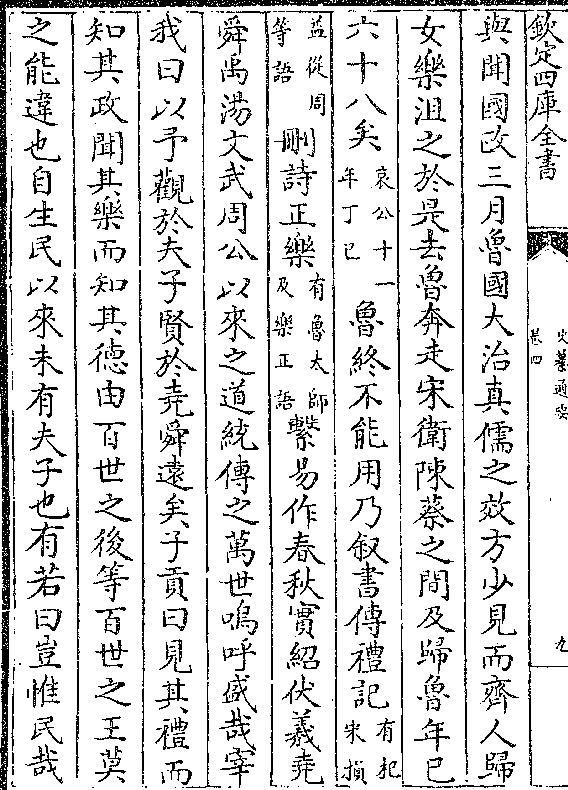 欽定四庫全書
史纂通要
卷四
九
與聞國政三月魯國大治真儒之效方少見而齊人歸
女樂沮之於是去魯奔走宋衛陳蔡之間及歸魯年已
六十八矣哀公十一年丁巳魯終不能用乃叙書傳禮記有杞宋損
益從周等語刪詩正樂有魯太師摯及樂正語繫易作春秋實紹伏羲堯
舜禹湯文武周公以來之道統傳之萬世嗚呼盛哉宰
我曰以予觀於夫子賢於堯舜遠矣子貢曰見其禮而
知其政聞其樂而知其徳由百世之後等百世之王莫
之能違也自生民以來未有夫子也有若曰豈惟民哉